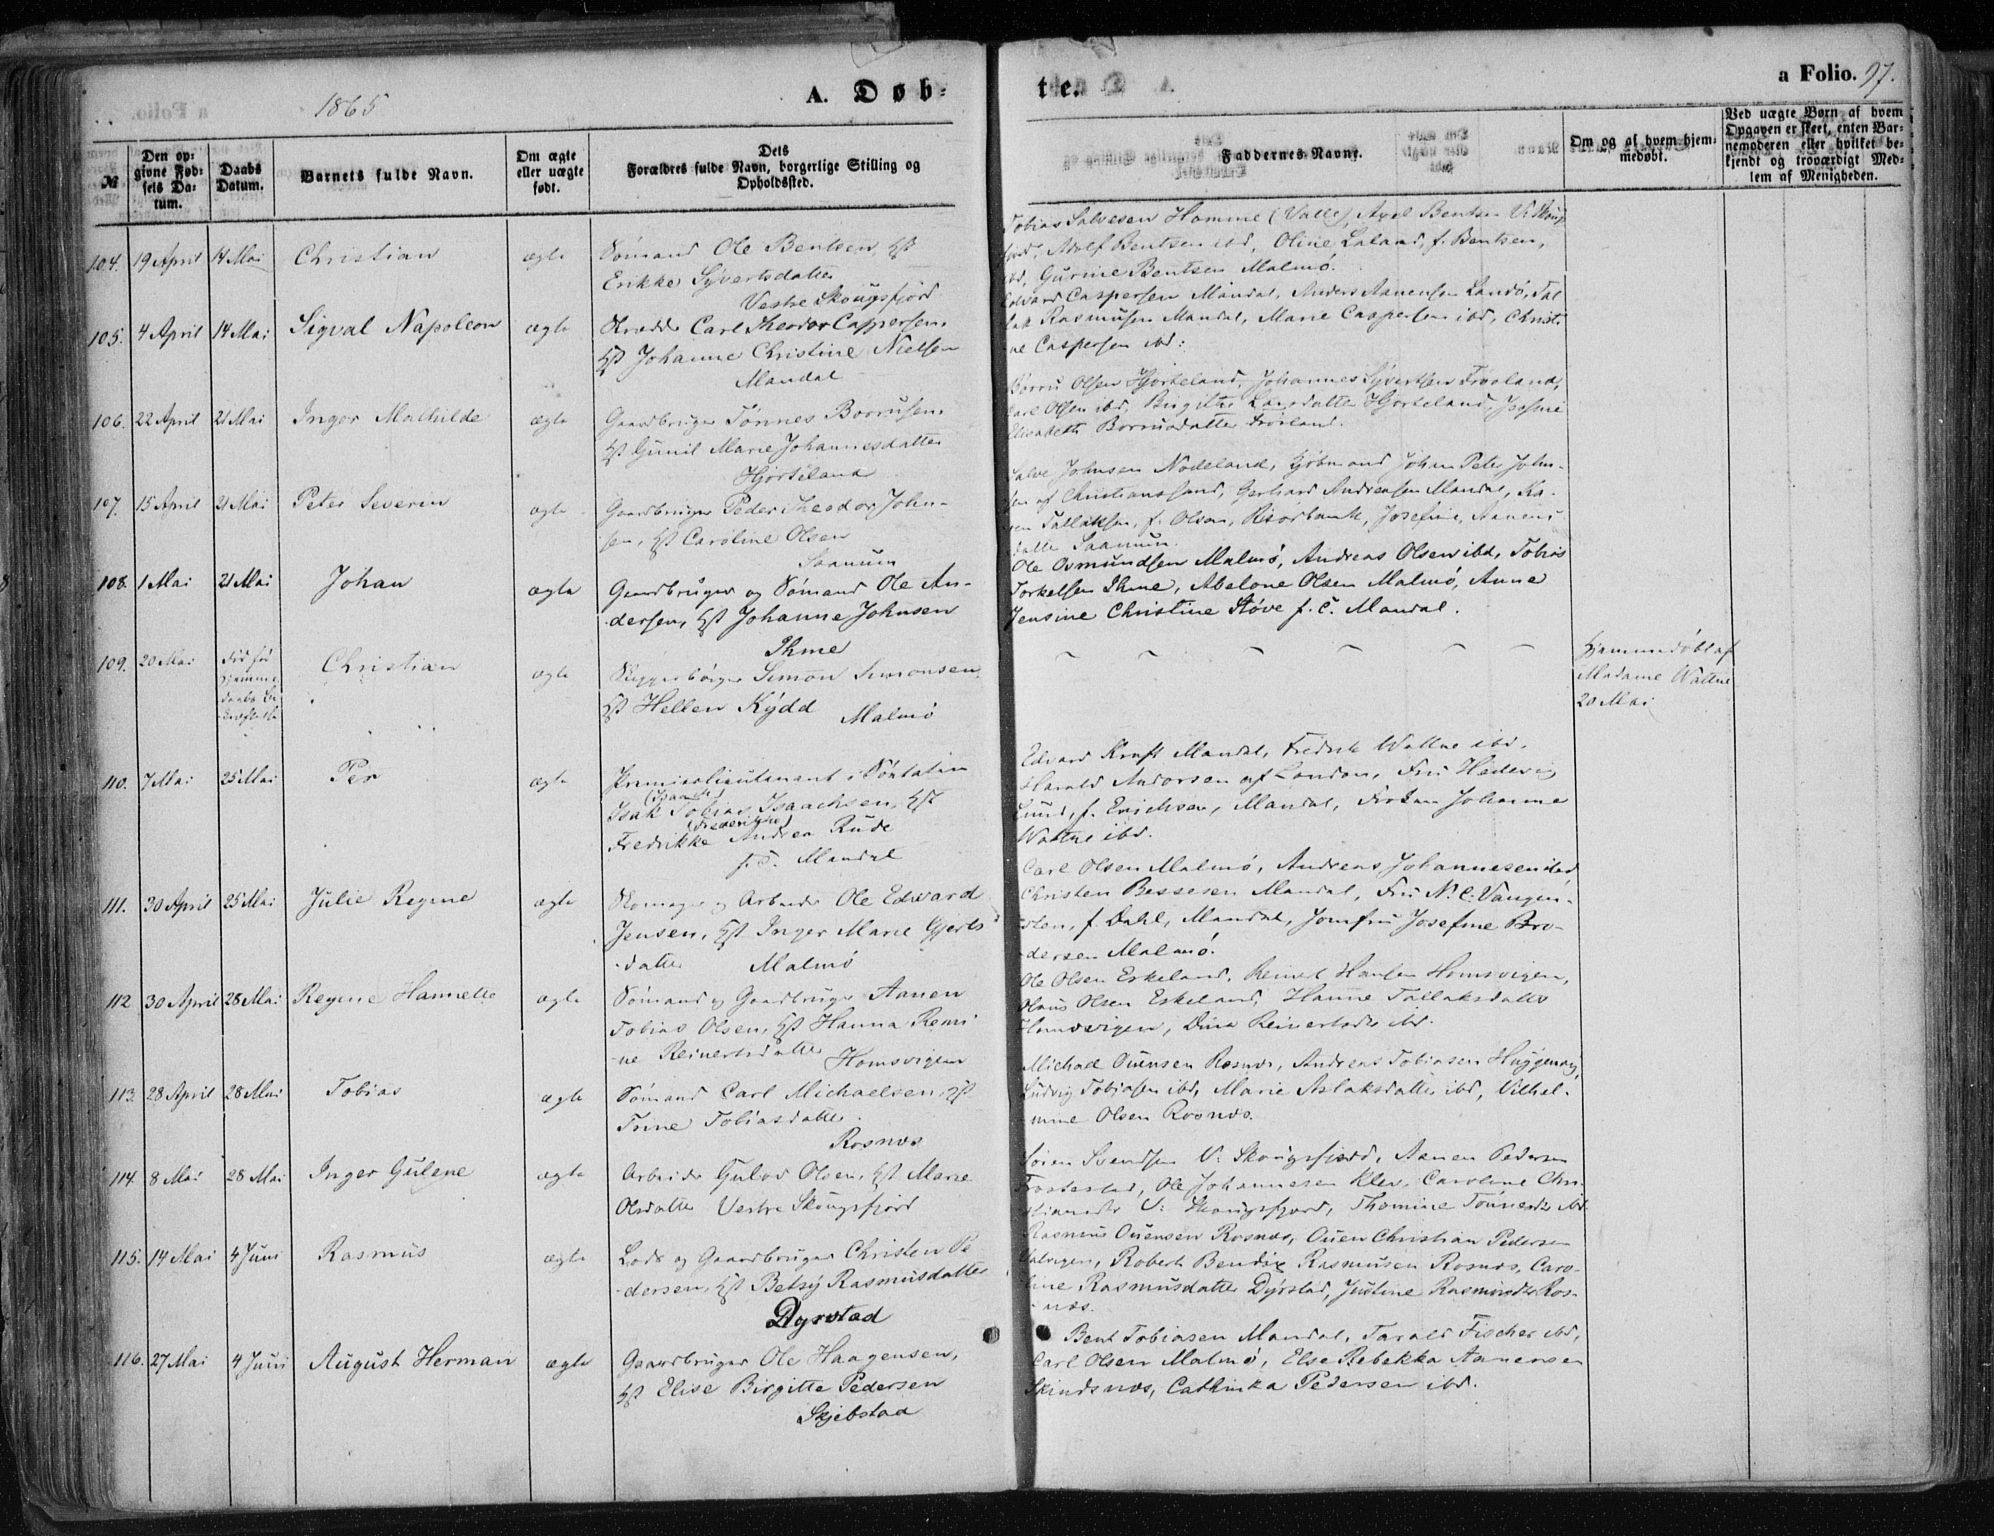 1865
A. Døb-
te.
a Folio. 97.
№
Den op-
givne Fød-
sels Da-
tum.
Daabs
Datum.
Barnets fulde Navn.
Om ægte
eller uægte
født.
Dets
Forældres fulde Navn, borgerlige Stilling og
Opholdssted.
Faddernes Navne.
Om og af hvem hjem-
medøbt.
Ved uægte Børn af hvem
Opgaven er skeet, enten Bar-
nemoderen eller hvilket be-
kjendt og troværdigt Med-
lem af Menigheden.
104. 19 April 14 Mai Christian ægte Sømand Ole Bentsen, Hst
Erikke Syvertsdatter
Vestre Skougsfjord
Tobias Salvesen Homme (Valle), Axel Bentsen V. Skougs
fjord, Adolf Bentsen ibd, Oline Laland, f. Bentsen,
ibd, Gurine Bentsen Malmø.
105. 4 April 14 Mai Sigval Napoleon ægte Carl Theodor Caspersen,
Hst Johanne Christine Nielsen
Mandal
Edvard Caspersen Mandal, Anders Aanensen Landø, Tal
lak Rasmusen Mandal, Marie Caspersen ibd, Christi
ne Caspersen ibd:
106. 22 April 21 Mai Inger Mathilde ægte Gaardbruger Tønnes Borrusen,
Hst Gunil Marie Johannesdatter
Hjorteland
Borru Olsen Hjorteland, Johannes Syvertsen Frøoland,
Carl Olsen ibd, Birgitte Larsdatter Hjorteland,
Elisabeth Borrusdatter
107. 15 April 21 Mai Peter Severin ægte Gaardbruger Peder Theodor John-
sen, Hst Caroline Olsen
Saanum
Salve Johnsen Nodeland, Kjøbmand Johan Peter John-
sen af Christianssand, Gerhard Andreasen Mandal, Ka-
ren Tallaksen, f. Olsen, Risørbank, Josefine Aanens
datter Saanum.
108. 1 Mai 21 Mai Johan ægte Gaardbruger og Sømand Ole An-
dersen, Hst Johanne Johnsen
Ihme
Ole Osmundsen Malmø, Andreas Olsen ibd, Tobias
Torkelsen Ihme, Abelone Olsen Malmø, Anne
Jensine Christine Støve f. C. Mandal.
109. 20 Mai Christian ægte Simon Simonsen,
Hst Hellen Kydd Malmø
Hjemmedøbt af
Madame Wattne
20 Mai
110. 7 Mai 25 Mai Per ægte Premierlieutenant i Søetaten
(Isaach)
Isak Tobias Isaachsen, Hst
(Frederikke)
Fredrikke Andrea Rude
p. T. Mandal
Edvard Kraft Mandal, Fredrik Wattne ibd.
Harald Andorsen af London, Fru Hedevig
Lund, f. Erichsen, Mandal, Frøken Johanne
Wattne ibd.
111. 30 April 25 Mai Julie Regine ægte Skomager og Arbeider Ole Edward
Jensen, Hst Inger Marie Gjerts
datter Malmø
Carl Olsen Malmø, Andreas Johannesen ibd
Christen Bessesen Mandal, Fru N. C. Vangen-
sten, f. Dahl, Mandal, Jomfru Josefine Bro-
dersen Malmø.
112. 30 April 28 Mai Regine Hannette ægte Sømand og Gaardbruger Aanen
Tobias Olsen, Hst Hanna Remi
ne Reinertsdatter Homsvigen
Ole Olsen Eskeland, Reinert Hansen Homsvigen,
Olaus Olsen Eskeland, Hanne Tallaksdatter
Homsvigen, Dina Reinertsdtr ibd.
113. 28 April 28 Mai Tobias ægte Sømand Carl Michaelsen, Hst
Trine Tobiasdatter.
Rosnæs
Michael Ouensen Rosnæs, Andreas Tobiasen
Ludvig Tobiasen ibd, Marie Aslaksdatter ibd, Vilhel-
mine Olsen Rosnæs.
114. 8 Mai 28 Mai Inger Gulene ægte Arbeider Gulov Olsen, Hst Marie
Olsdatter Vestre Skougsfjord
Søren Svendsen V. Skougsfjord, Aanen Pedersen
Frøstestad, Ole Johannesen Klev, Caroline Chri
stiansdtr V: Skougsfjord, Thomine Tønnesdtr ibd.
115. 14 Mai 4 Juni Rasmus ægte Lods og Gaardbruger Christen Pe
dersen, Hst Betsy Rasmusdatter
Dyrstad
Rasmus Ouensen Rosnæs, Ouen Christian Pedersen
Robert Bendix Rasmusen Rosnæs, Caro-
line Rasmusdatter Dyrstad, Justine Rasmusdtr Ros-
næs.
116. 27 Mai 4 Juni August Herman ægte Gaardbruger Ole Haagensen,
Hst Elise Birgitte Pedersen
Skjebstad
Bent Tobiasen Mandal, Tarald Fischer ibd,
Carl Olsen Malmø, Else Rebekka Aanensen
Skindsnæs, Cathinka Pedersen ibd.